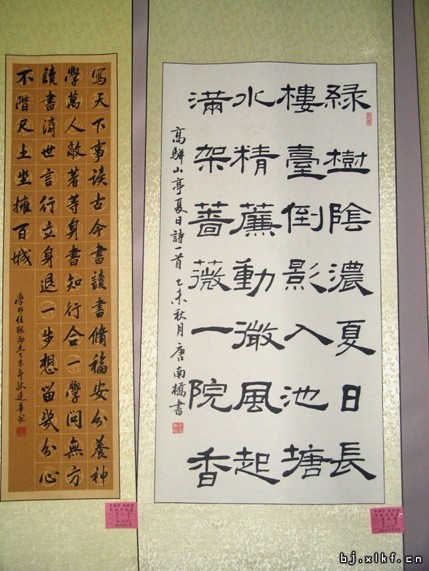 綠樹陰濃夏日長
樓臺倒影入池塘
水精簾動微風起
滿架薔薇一院香
高駢山亭夏日詩一首 乙未秋月 唐南橋書
寫天下事談古今書讀書脩福安分養神
學萬人敵著等身書知行合一學問無方
讀書濟世言行立身退一步想留幾分心
不階尺土坐擁百城
bj.xlkf.cn